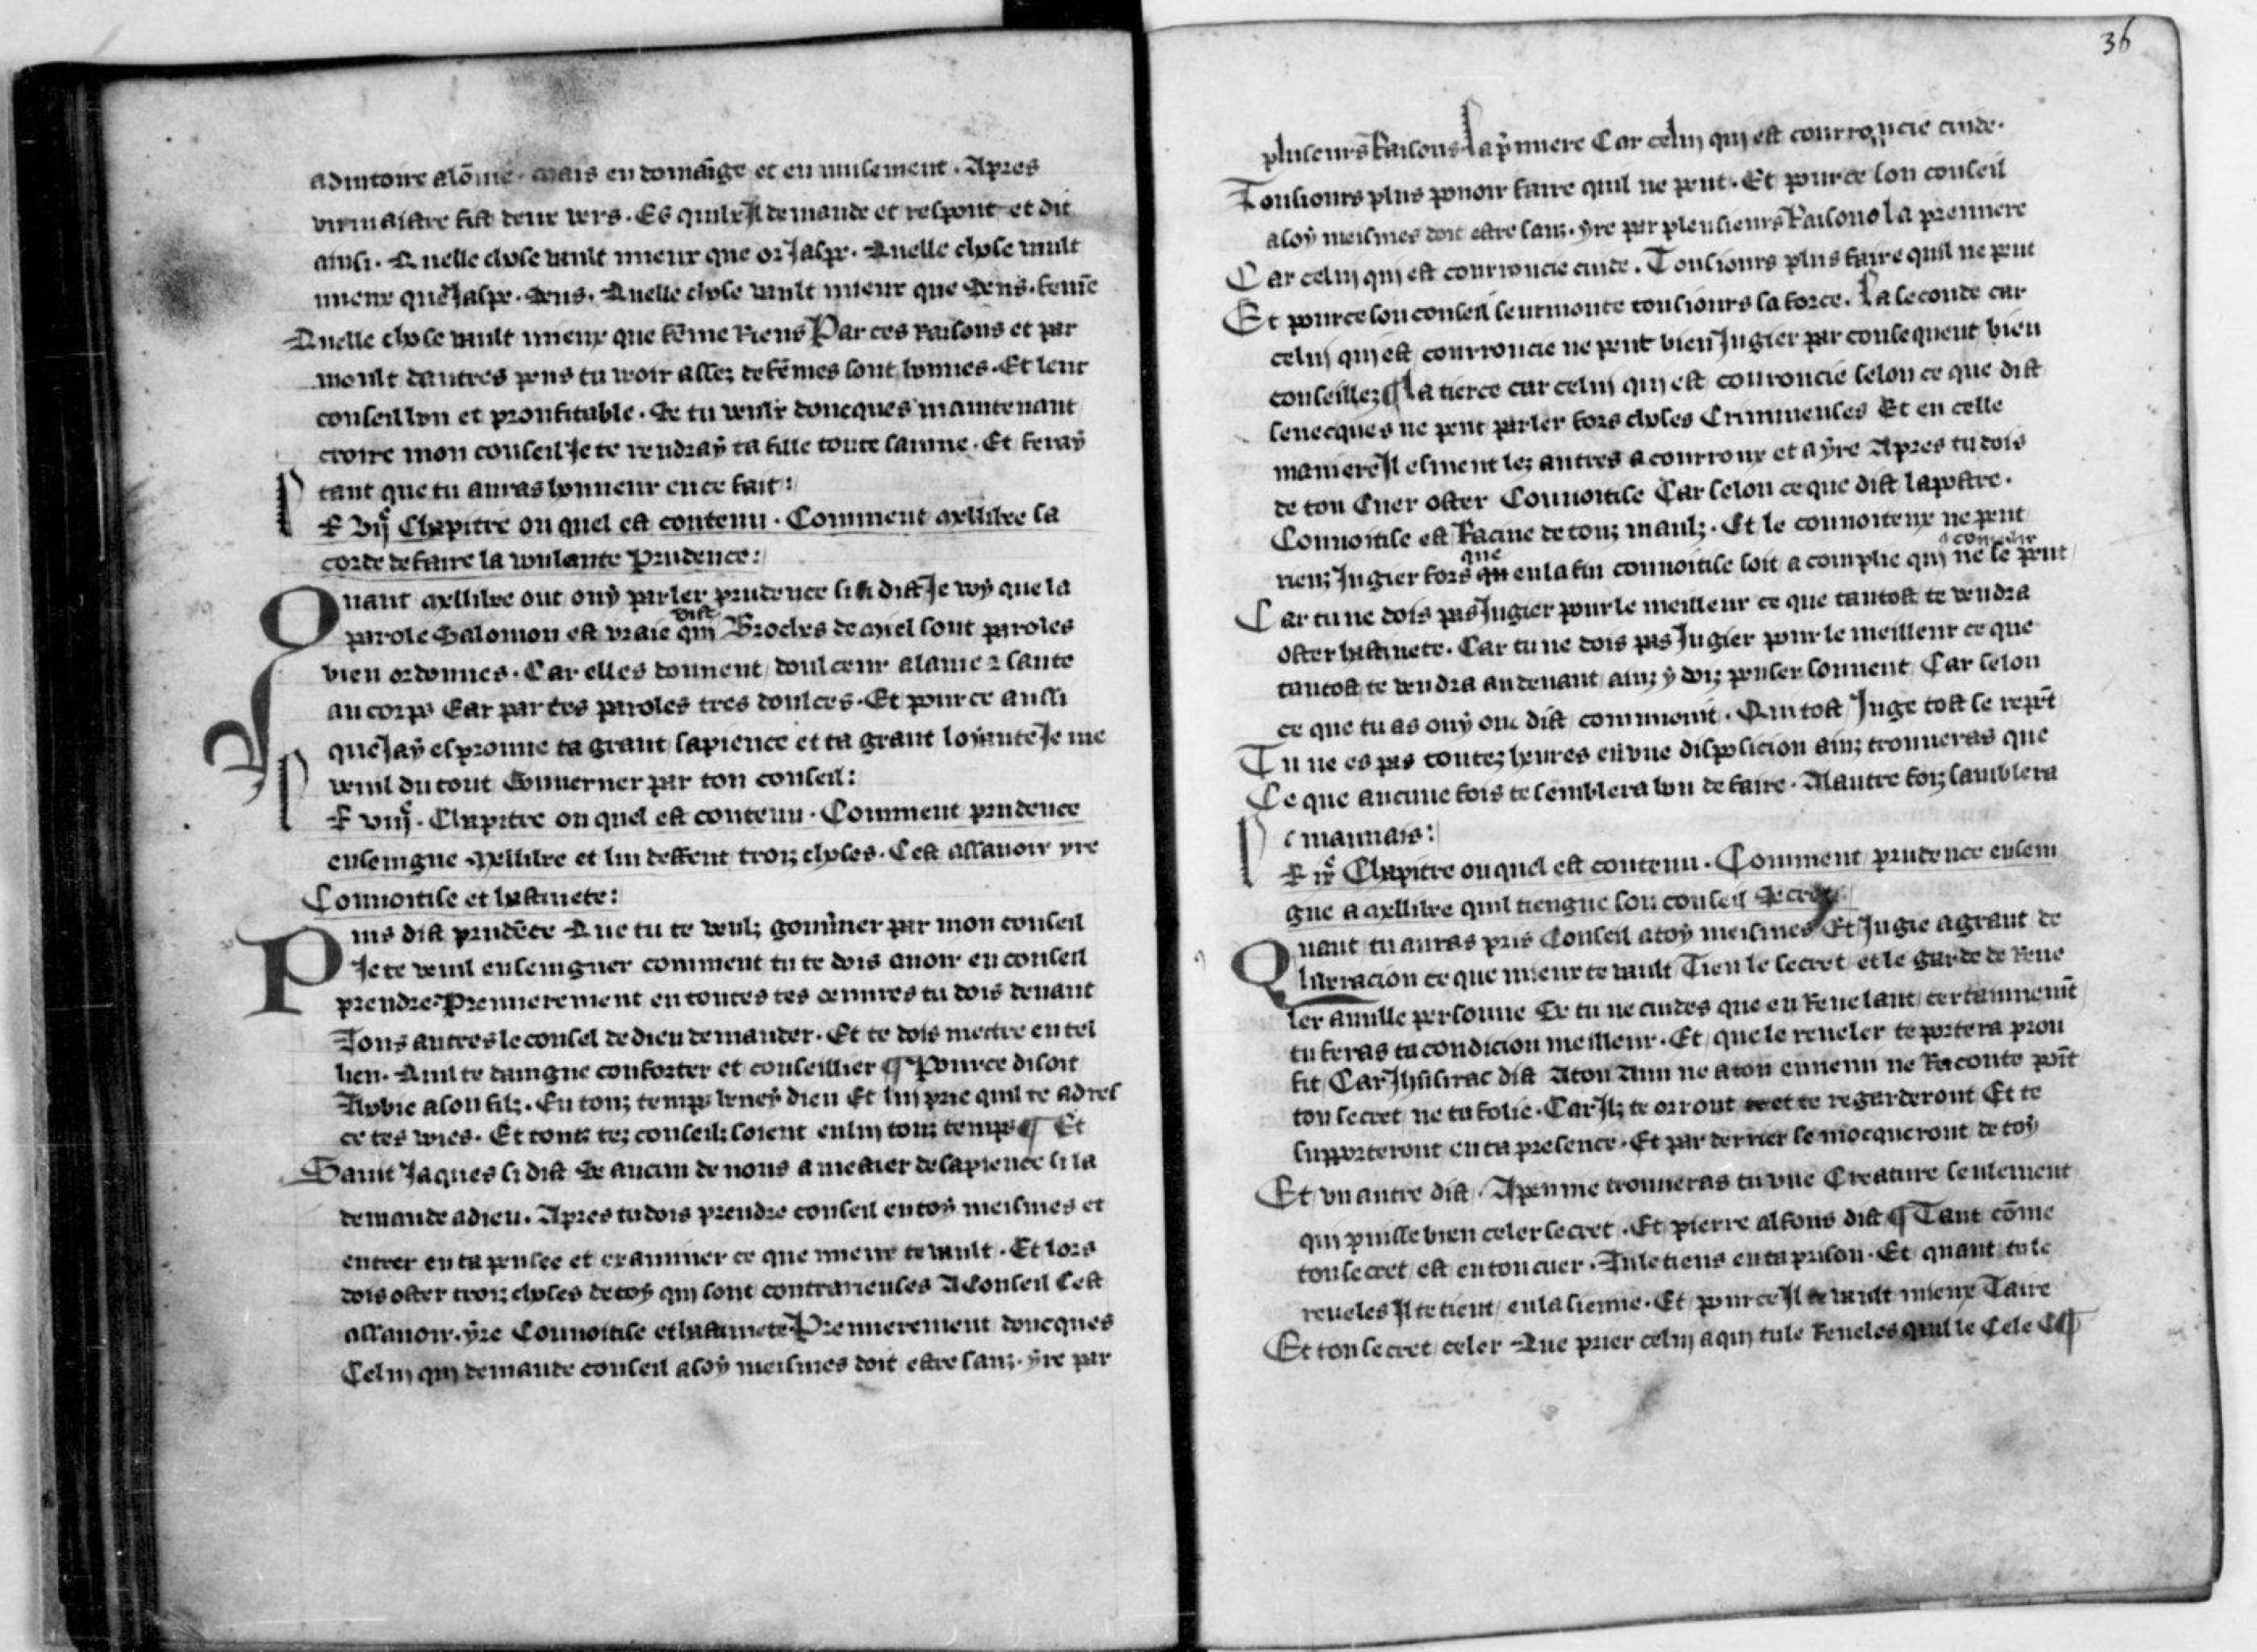 adiutoire a lo͂me. mais en doma͂ige et en nuisement. Apres
vn maistre fist deux vers. Es quilx Il demande et respont et dit
ainsi. Quelle chose vault mieux que or Jaspe. Quelle chose vault
mieux que Jaspe. Sens. Quelle chose vault mieux que Sens. fem̄e
Quelle chose vault mieux que fe͂me Riens Par ces raisons et par
moult dautres peus tu veoir assez de fe͂mes sont bonnes. Et leur
conseil bon et proufitable. Se tu veulx doncques maintenant
croire mon conseil Je te rendraÿ ta fille toute sainne. Et feraÿ
tant que tu auras honneur en ce fait:
Le vije Chapitre ou quel est contenu. Comment mellibee sa
corde de faire la voulante Prudence:
Quant mellibee out ouÿ parler prudence si li dist Je voÿ que la
parole Salomon est vraie qui dist Broches de miel sont paroles
bien ordonnes. Car elles donnent doulceur a lame ⁊ sante
au corps Car par tes paroles tres doulces. Et pour ce aussi
que Jaÿ esprouue ta grant sapience et ta grant loÿaute Je me
vueil du tout Gouuerner par ton conseil:
Le viije. Chapitre ou quel est contenu. Comment prudence
enseingne Mellibee et lui deffent troiz choses. Cest assauoir yre
Conuoitise et hastiuete:
Puis dist prude͂ce Que tu te veulz gou͂ner par mon conseil
Je te vueil enseingner comment tu te dois auoir en conseil
prendre. Premierement en toutes tes oeuures tu dois deuant
Tous autres le consel de dieu demander. Et te dois mettre en tel
lieu. Quil te daingne conforter et conseillier ¶ Pource disoit
Thobie a son filz. En touz temps beneÿ dieu Et lui prie quil te adres
ce tes voies. Et touz tez conseilz soient en lui touz temps ¶ Et
Saint Jaques si dist Se aucun de nous a mestier de sapience si la
demande a dieu. Apres tu dois prendre conseil en toÿ meismes et
entrer en ta pensee et examiner ce que mieux te vault. Et lors
dois oster troiz choses de toÿ qui sont contrarieuses A Conseil Cest
assauoir. ÿre Conuoitise et hastiuete. Premierement doncques
Celui qui demande conseil a soÿ meismes doit estre sanz. ÿre par
36
pluseurs Raisons. La p̾miere Car celui qui est courroucie cuide.
Tousiours plus pouoir faire quil ne peut. Et pour ce son conseil
a soÿ meismes doit estre sanz. ÿre par pleusieurs Raisons La premiere
Car celui qui est courroucie cuide. Tousiours plus faire quil ne peut
Et pource son conseil seurmonte tousiours sa force. La seconde car
celui qui est courroucie ne peut bien Jugier par consequent bien
conseillez ¶ La tierce car celui qui est couroucie selon ce que dist
senecques ne peut parler fors choses Crimineuses Et en celle
maniere Il esment lez autres a courroux et a ÿre Apres tu dois
de ton Cuer oster Conuoitise Car selon ce que dist lapostre.
Conuoitise est Racine de touz maulz. Et le conuoiteux ne peut
rienz Jugier fors que en la fin conuoitise soit a complie qui ne se peut
Car tu ne dois pas Jugier pour le meilleur ce que tantost te vendra
Oster hastiuete. Car tu ne dois pas Jugier pour le meilleur ce que
tantost te vendra au deuant ainz ÿ doiz penser souuent Car selon
ce que tu as ouÿ ou dist communnt. Qui tost Juge tost se repe͂t
Tu ne es pas toutez heures en vne disposicion ainz trouueras que
Ce que aucune fois te semblera bon de faire. A lautre foiz samblera
mauuais:
Le ixe Chapitre ou quel est contenu. Comment prudence ensein
gne a mellibee quil tiengne son conseil Secret
Quant tu auras pris Conseil a toÿ meismes Et Jugie a grant de
libracion ce que mieux te vault Tien le secret et le garde de Reue
ler a nulle personne Se tu ne cuides que en Reuelant certainnem̄t
tu feras ta condicion meilleur. Et que le reueler te portera prou
fit Car Jhusirac dist A ton Ami ne a ton ennemi ne Raconte poi͂t
ton secret ne ta folie. Car Ilz te orront et te regarderont Et te
supporteront en ta presence. Et par derrier se mocqueront de toÿ
Et vn autre dist. A peinne trouueras tu vne Creature seulement
qui puisse bien celer secret. Et pierre alfons dist ¶ Tant co͂me
ton secret est en ton cuer. Tu le tiens en ta prison. Et quant tu le
reueles Il te tient en la sienne. Et pour ce Il te vault mieux Taire
Et ton secret celer Que prier celui a qui tu le Reueles quil le Cele ¶